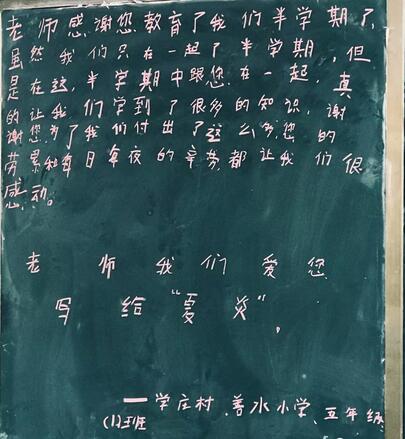 老师感谢您教育了我们半学期了,
虽然我们只在一起了半学期,但
是在这,半学期中跟您在一起,真
的让我们学到了很多的知识,谢
谢您为了我们付出了这么多您的
劳累和每日每夜的辛劳都让我们很
感动。
老师我们爱您
写给“夏炎”,
——学庄村、善水小学、五年级
(1)班